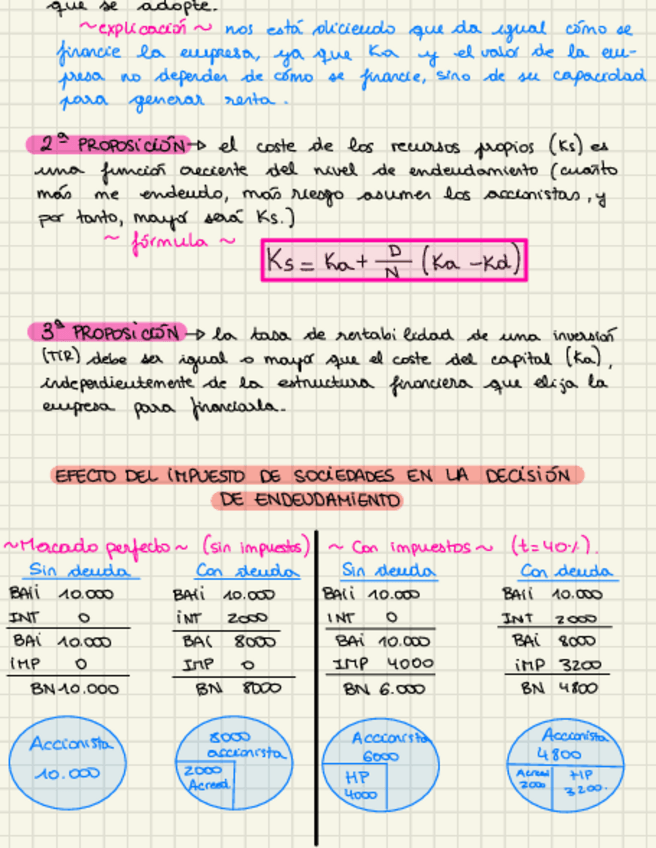 que se adopte.
~explicación~ nos está diciendo que da igual cómo se
financie la empresa, ya que Ka y el valor de la em-
presa no depender de cómo se financie, sino de su capacidad
para generar renta.
2ª PROPOSICIÓN→ el coste de los recursos propios (Ks) es
una función creciente del nivel de endeudamiento (cuanto
más me endeudo, más riesgo asumen los accionistas, y
por tanto, mayor será Ks.)
~ fórmula ~
Ks = Ka + D/N (Ka - Kd)
3ª PROPOSICIÓN→ la tasa de rentabilidad de una inversión
(TIR) debe ser igual o mayor que el coste del capital (Ka),
independientemente de la estructura financiera que elija la
empresa para financiarla.
EFECTO DEL IMPUESTO DE SOCIEDADES EN LA DECISIÓN
DE ENDEUDAMIENTO
~Mercado perfecto~ (sin impuestos) ~ Con impuestos ~ (t=40%).
Sin deuda Con deuda Sin deuda Con deuda
BAII 10.000 BAII 10.000 BAII 10.000 BAII 10.000
INT 0 INT 2000 INT 0 INT 2000
BAI 10.000 BAI 8000 BAI 10.000 BAI 8000
IMP 0 IMP 0 IMP 4000 IMP 3200
BN 10.000 BN 8000 BN 6.000 BN 4800
Accionista
10.000
8000
accionista
2000
Acreed.
Accionista
6000
HP
4000
Accionista
4800
Acreed
2000
HP
3200.